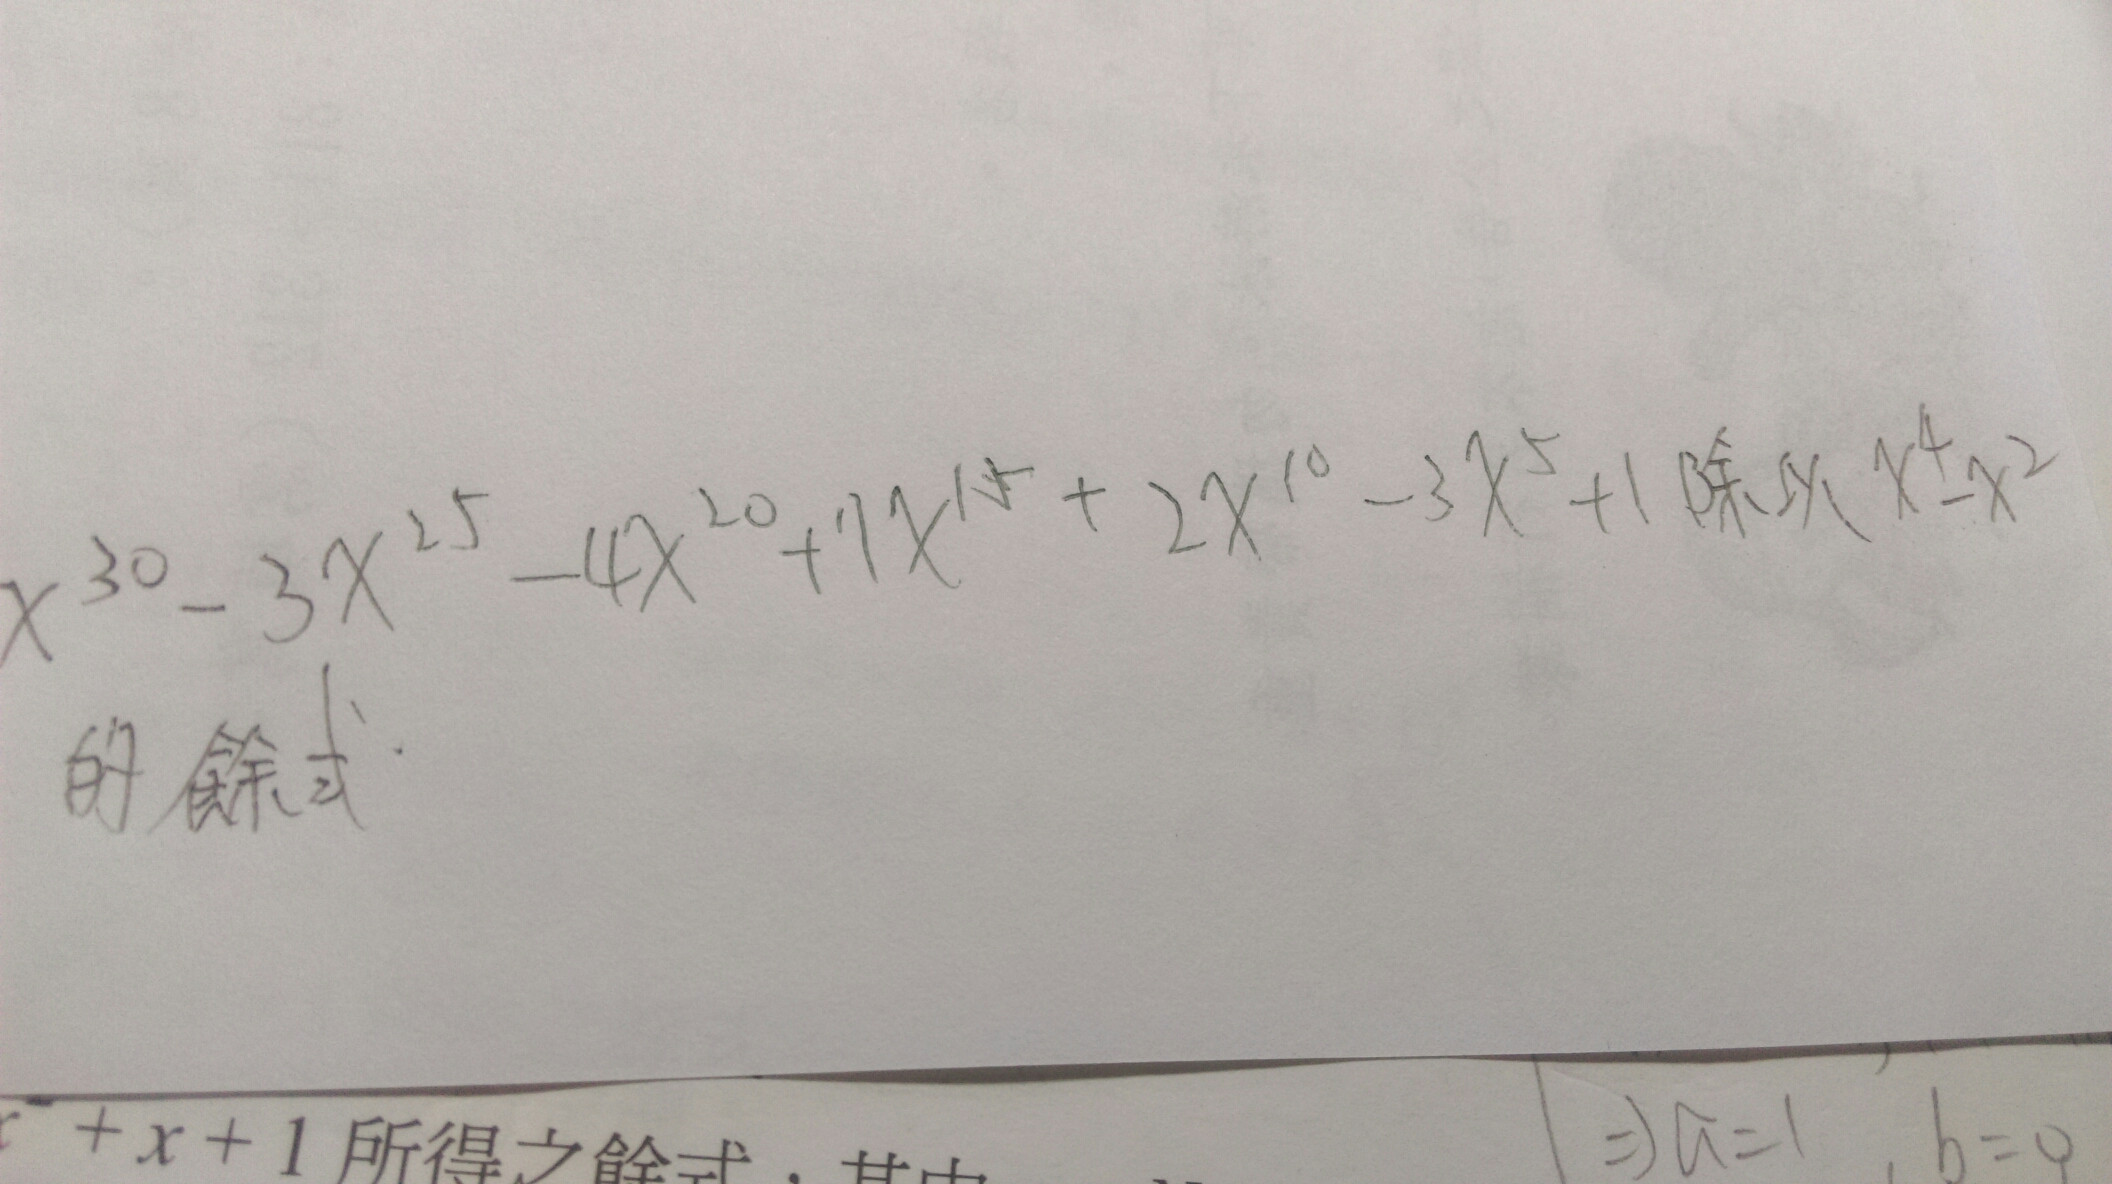 x³⁰ - 3x²⁵ - 4x²⁰ + 7x¹⁵ + 2x¹⁰ - 3x⁵ + 1 除以 x⁴ - x²
的餘式.
+ x + 1 所得之餘式，其中
⇒ a = 1 , b = 9